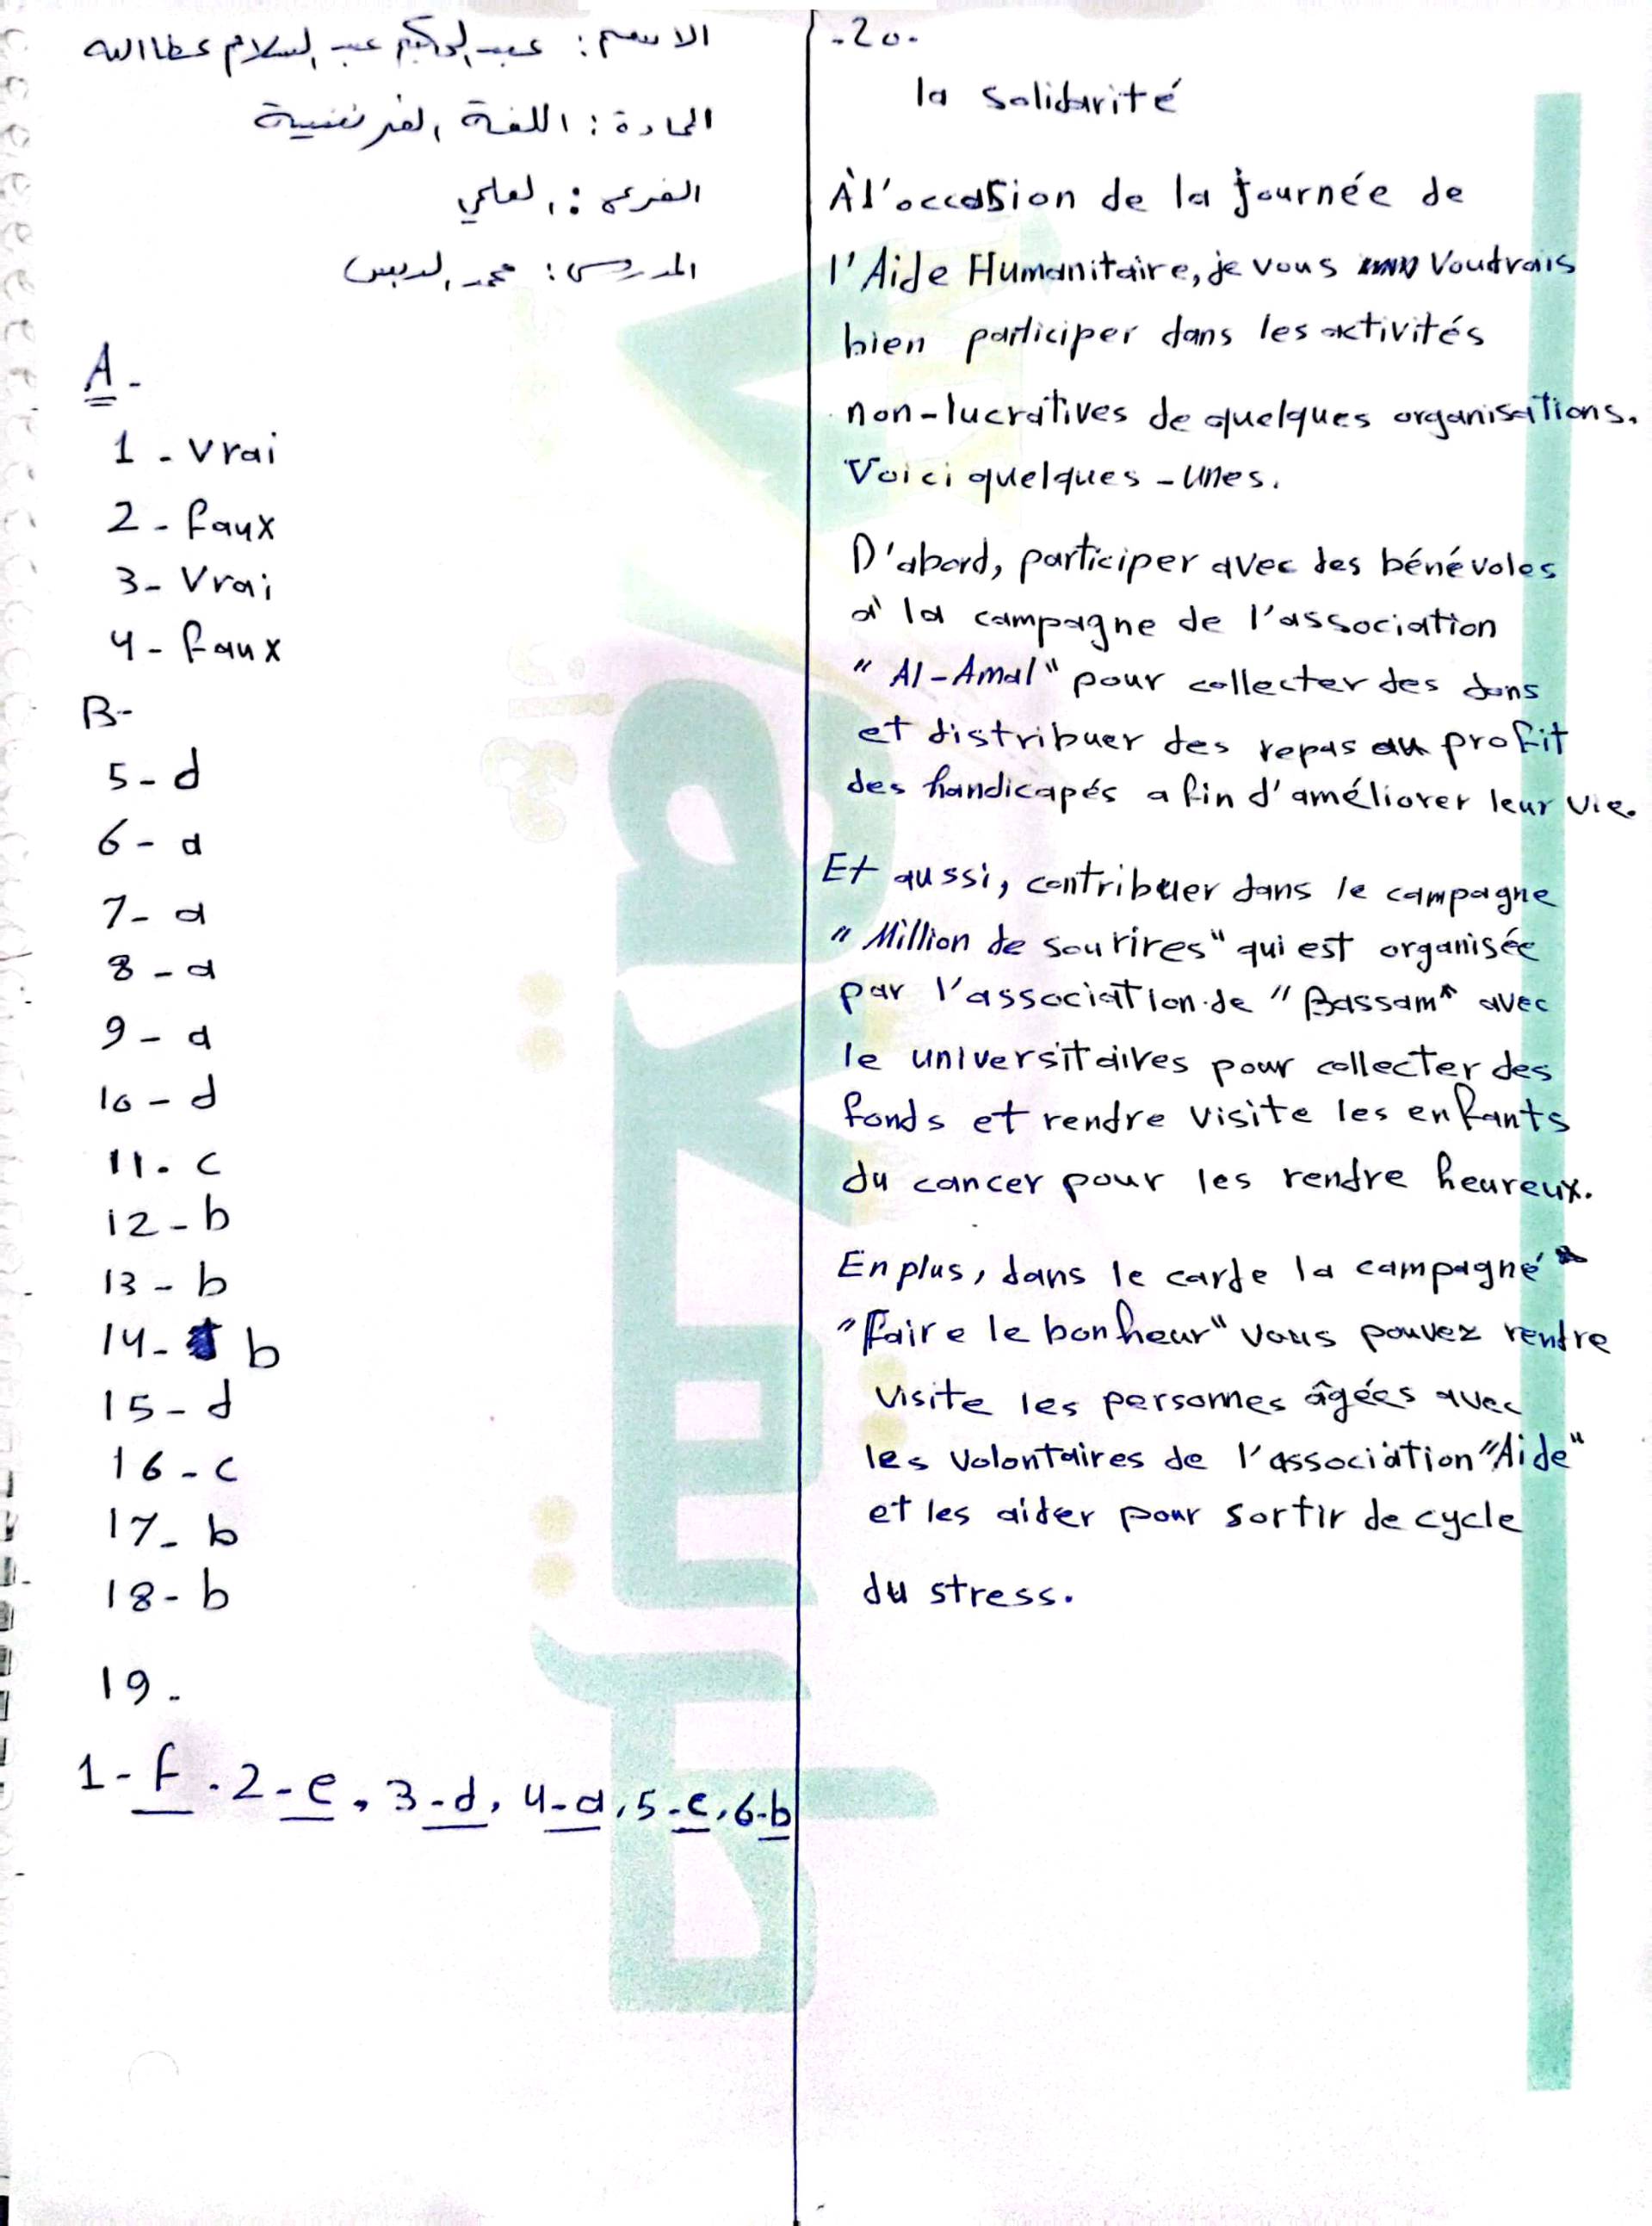 الاسم : عبد الحكيم عبد السلام عطاالله
المادة : اللغة الفرنسية
الفرع : العلمي
المدرس : محمد الدبس
A -
1 - Vrai
2 - faux
3 - Vrai
4 - faux
B -
5 - d
6 - a
7 - a
8 - a
9 - a
10 - d
11 . c
12 - b
13 - b
14 - b
15 - d
16 - c
17 - b
18 - b
19 -
1 - f . 2 - e , 3 - d , 4 - a , 5 - c , 6 - b
- 20 -
la solidarité
À l'occasion de la journée de
l'Aide Humanitaire, je vous Voudrais
bien participer dans les activités
non-lucratives de quelques organisations.
Voici quelques-unes.
D'abord, participer avec des bénévoles
à la campagne de l'association
"Al-Amal" pour collecter des dons
et distribuer des repas au profit
des handicapés afin d'améliorer leur vie.
Et aussi, contribuer dans le campagne
"Million de sourires" qui est organisée
par l'association de "Bassam" avec
le universitaires pour collecter des
fonds et rendre visite les enfants
du cancer pour les rendre heureux.
En plus, dans le carde la campagne
"Faire le bonheur" vous pouvez rendre
visite les personnes âgées avec
les volontaires de l'association "Aide"
et les aider pour sortir de cycle
du stress.